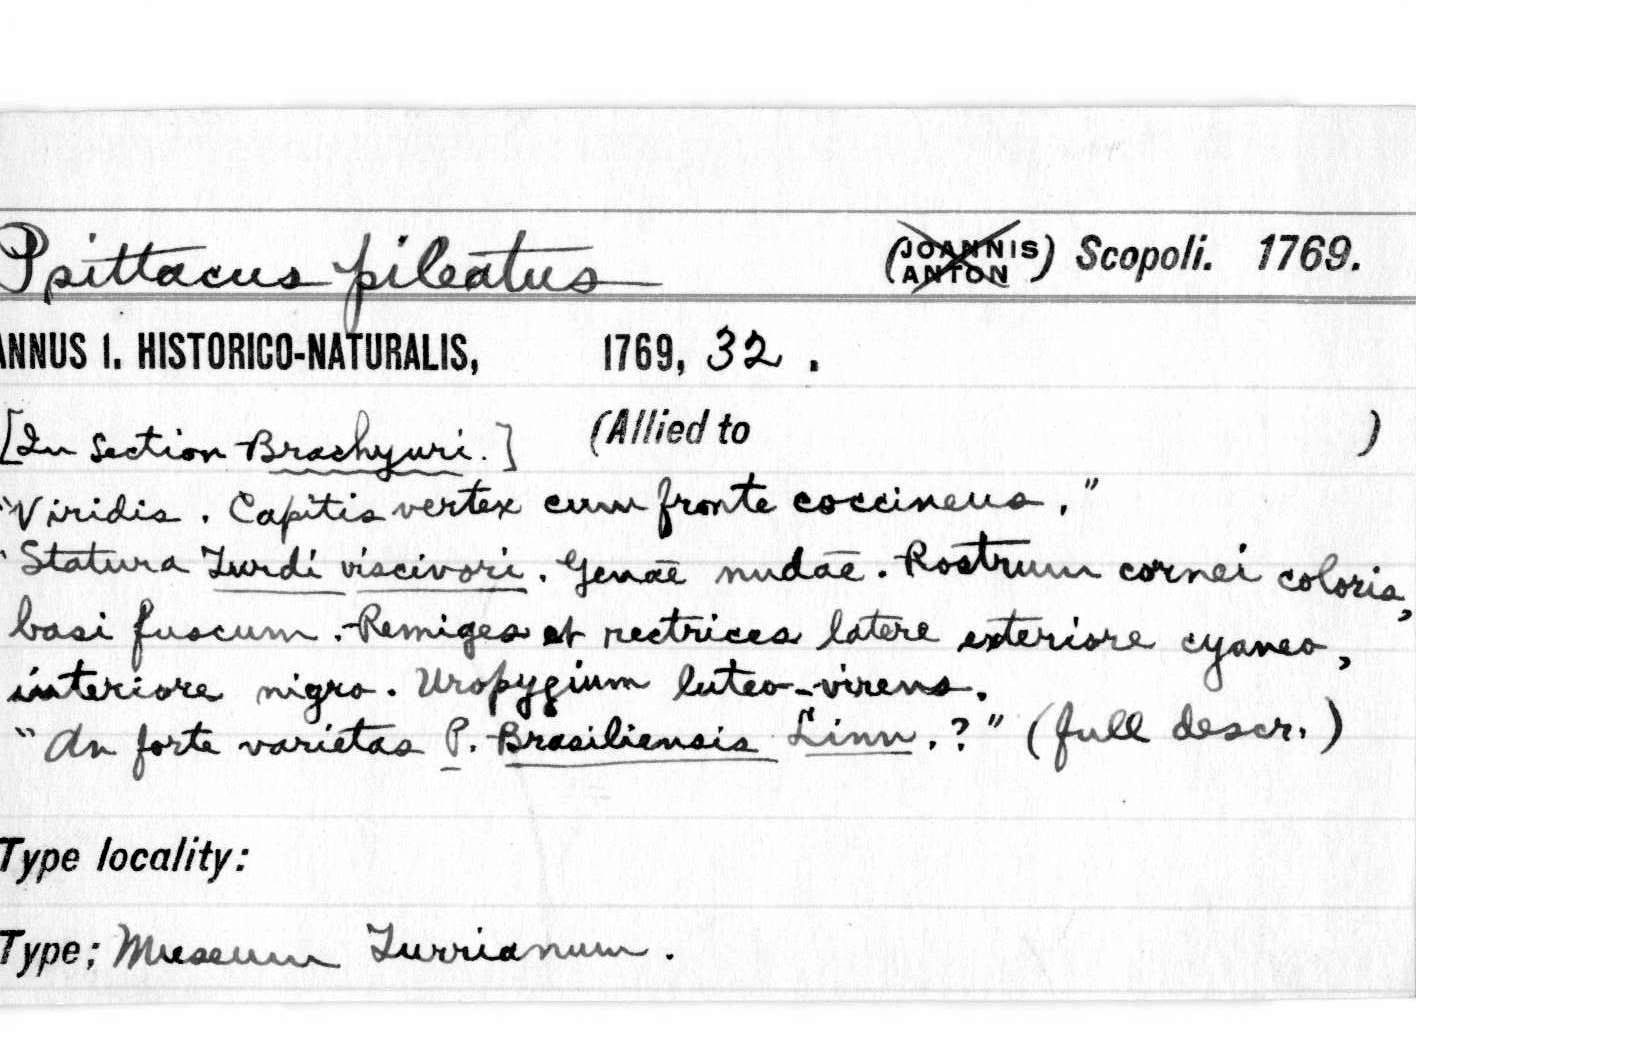 Psittacus pileatus (JOANNIS ANTON) Scopoli. 1769.
ANNUS I. HISTORICO-NATURALIS, 1769, 32.
[In Section Brachyuri.] (Allied to )
"Viridis. Capitis vertex cum fronte coccineus."
"Statura Turdi viscivori. Genae nudae. Rostrum cornei coloris,
basi fuscum. Remiges et rectrices latere exteriore cyaneo,
interiore nigro. Uropygium luteo-virens.
"An forte varietas P. Brasiliensis Linn.?" (full descr.)
Type locality:
Type; Museum Turrianum.